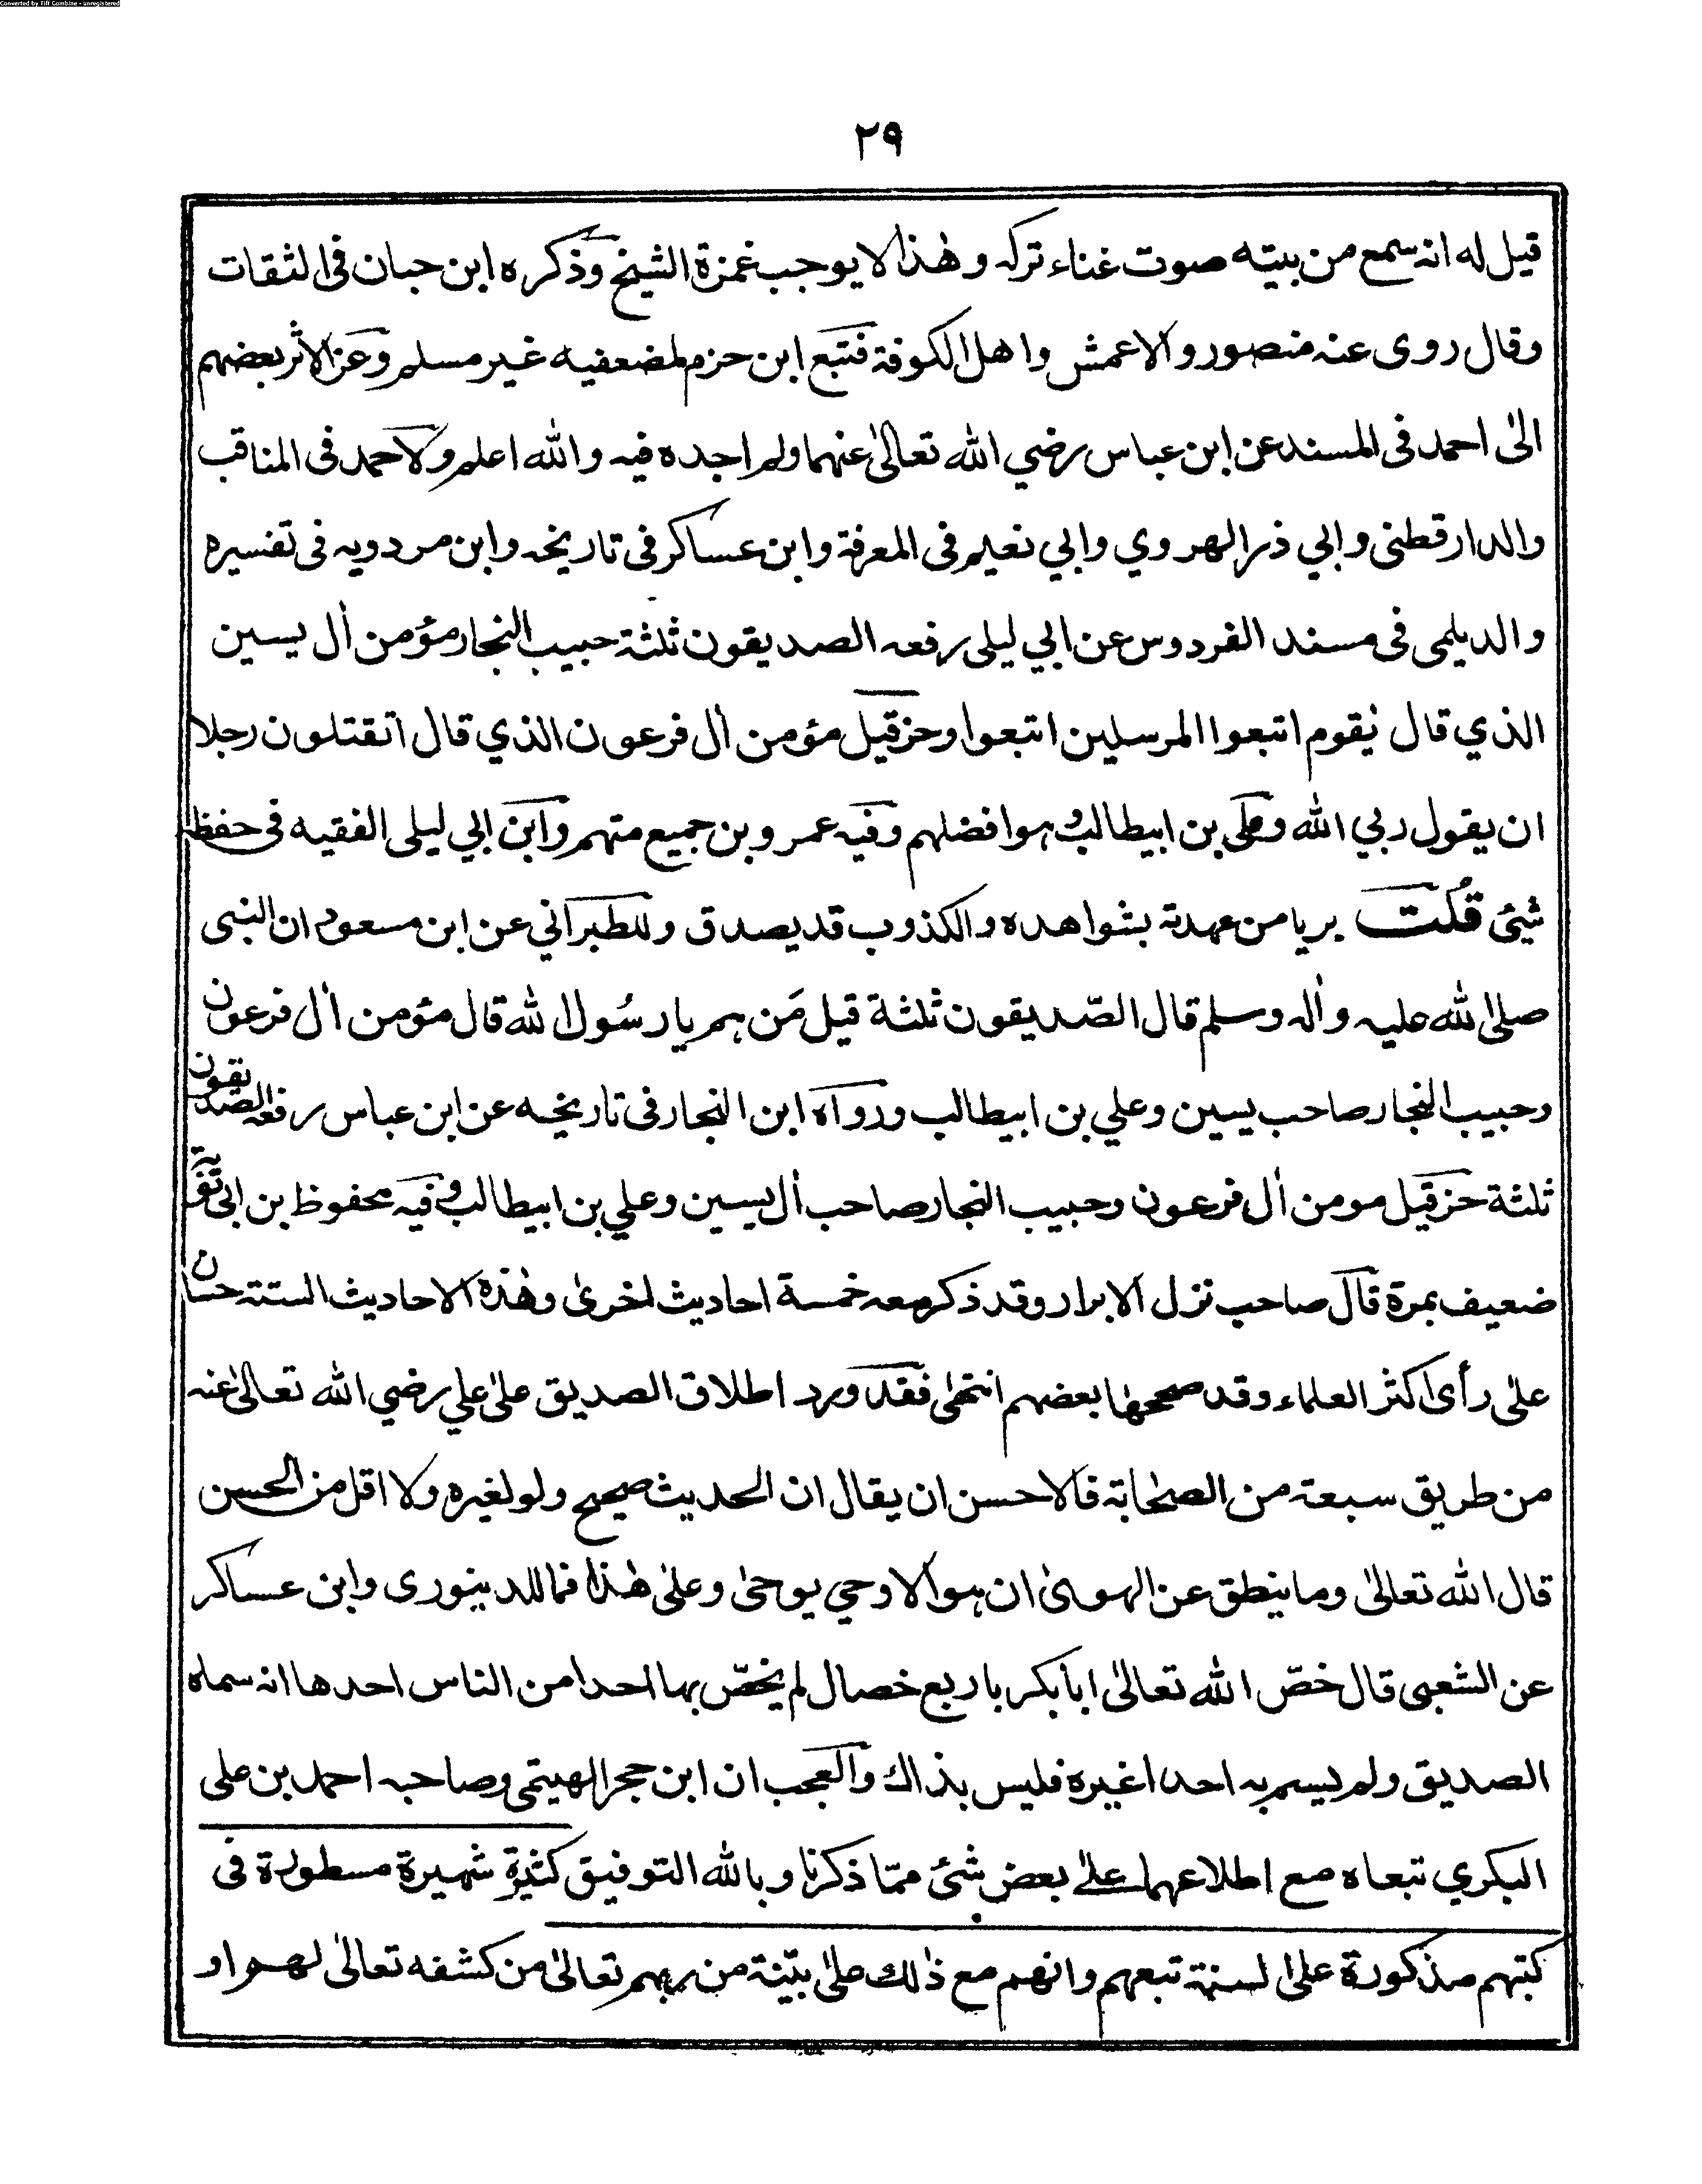 Converted by Tiff Combine - unregistered
٢٩
قيل له انه سمع من بيته صوت غناء تركه وهٰذا لا يوجب غمزة الشيخ وذكره ابن حبان فى الثقات
وقال روى عنه منصور والاعمش واهل الكوفة فتبع ابن حزم لمضعفيه غير مسلم وعز الاثر بعضهم
الىٰ احمد فى المسند عن ابن عباس رضي الله تعالىٰ عنهما ولم اجده فيه والله اعلم ولاحمد فى المناقب
والدارقطنى وابي ذر الهروي وابي نعيم فى المعرفة وابن عساكر فى تاريخه وابن مردويه فى تفسيره
والديلمى فى مسند الفردوس عن ابي ليلى رفعه الصديقون ثلثة حبيب النجار مؤمن اٰل يسين
الذي قال يٰقوم اتبعوا المرسلين اتبعوا وحزقيل مؤمن اٰل فرعون الذي قال اتقتلون رجلا
ان يقول ربي الله وعلى بن ابيطالب وهو افضلهم وفيه عمرو بن جميع متهم وابن ابي ليلى الفقيه فى حفظه
شيئ قُلت بريا من عهدته بشواهده والكذوب قد يصدق وللطبراني عن ابن مسعود ان النبى
صلى الله عليه واٰله وسلم قال الصّديقون ثلثة قيل مَن هم يا رسُول الله قال مؤمن اٰل فرعون
وحبيب النجار صاحب يسين وعلي بن ابيطالب ورواه ابن النجار فى تاريخه عن ابن عباس رفعه الصديقون
ثلثة حزقيل مومن اٰل فرعون وحبيب النجار صاحب اٰل يسين وعلي بن ابيطالب وفيه محفوظ بن ابى توبة
ضعيف بمرة قال صاحب نزل الابرار وقد ذكر معه خمسة احاديث اخرىٰ وهٰذه الاحاديث الستة حسان
علىٰ رأى اكثر العلماء وقد صححها بعضهم انتهىٰ فقد ورد اطلاق الصديق علىٰ علي رضي الله تعالىٰ عنه
من طريق سبعة من الصحٰابة فالاحسن ان يقال ان الحديث صحيح ولو لغيره ولا اقل من الحسن
قال الله تعالىٰ وما ينطق عن الهوىٰ ان هو الا وحي يوحىٰ وعلىٰ هٰذا فما للدينورى وابن عساكر
عن الشعبى قال خصّ الله تعالىٰ ابا بكر باربع خصال لم يخصّ بها احدا من الناس احدها انه سماه
الصديق ولم يسم به احدا غيره فليس بذاك والعجب ان ابن حجر الهيتمى وصاحبه احمد بن على
البكري تبعاه مع اطلاعهما علىٰ بعض شئ ممّا ذكرنا وبالله التوفيق كثيرة شهيرة مسطورة فى
كتبهم مذكورة على السنة تبعهم وانهم مع ذٰلك علىٰ بيّنة من ربهم تعالىٰ من كشفه تعالىٰ لهم او